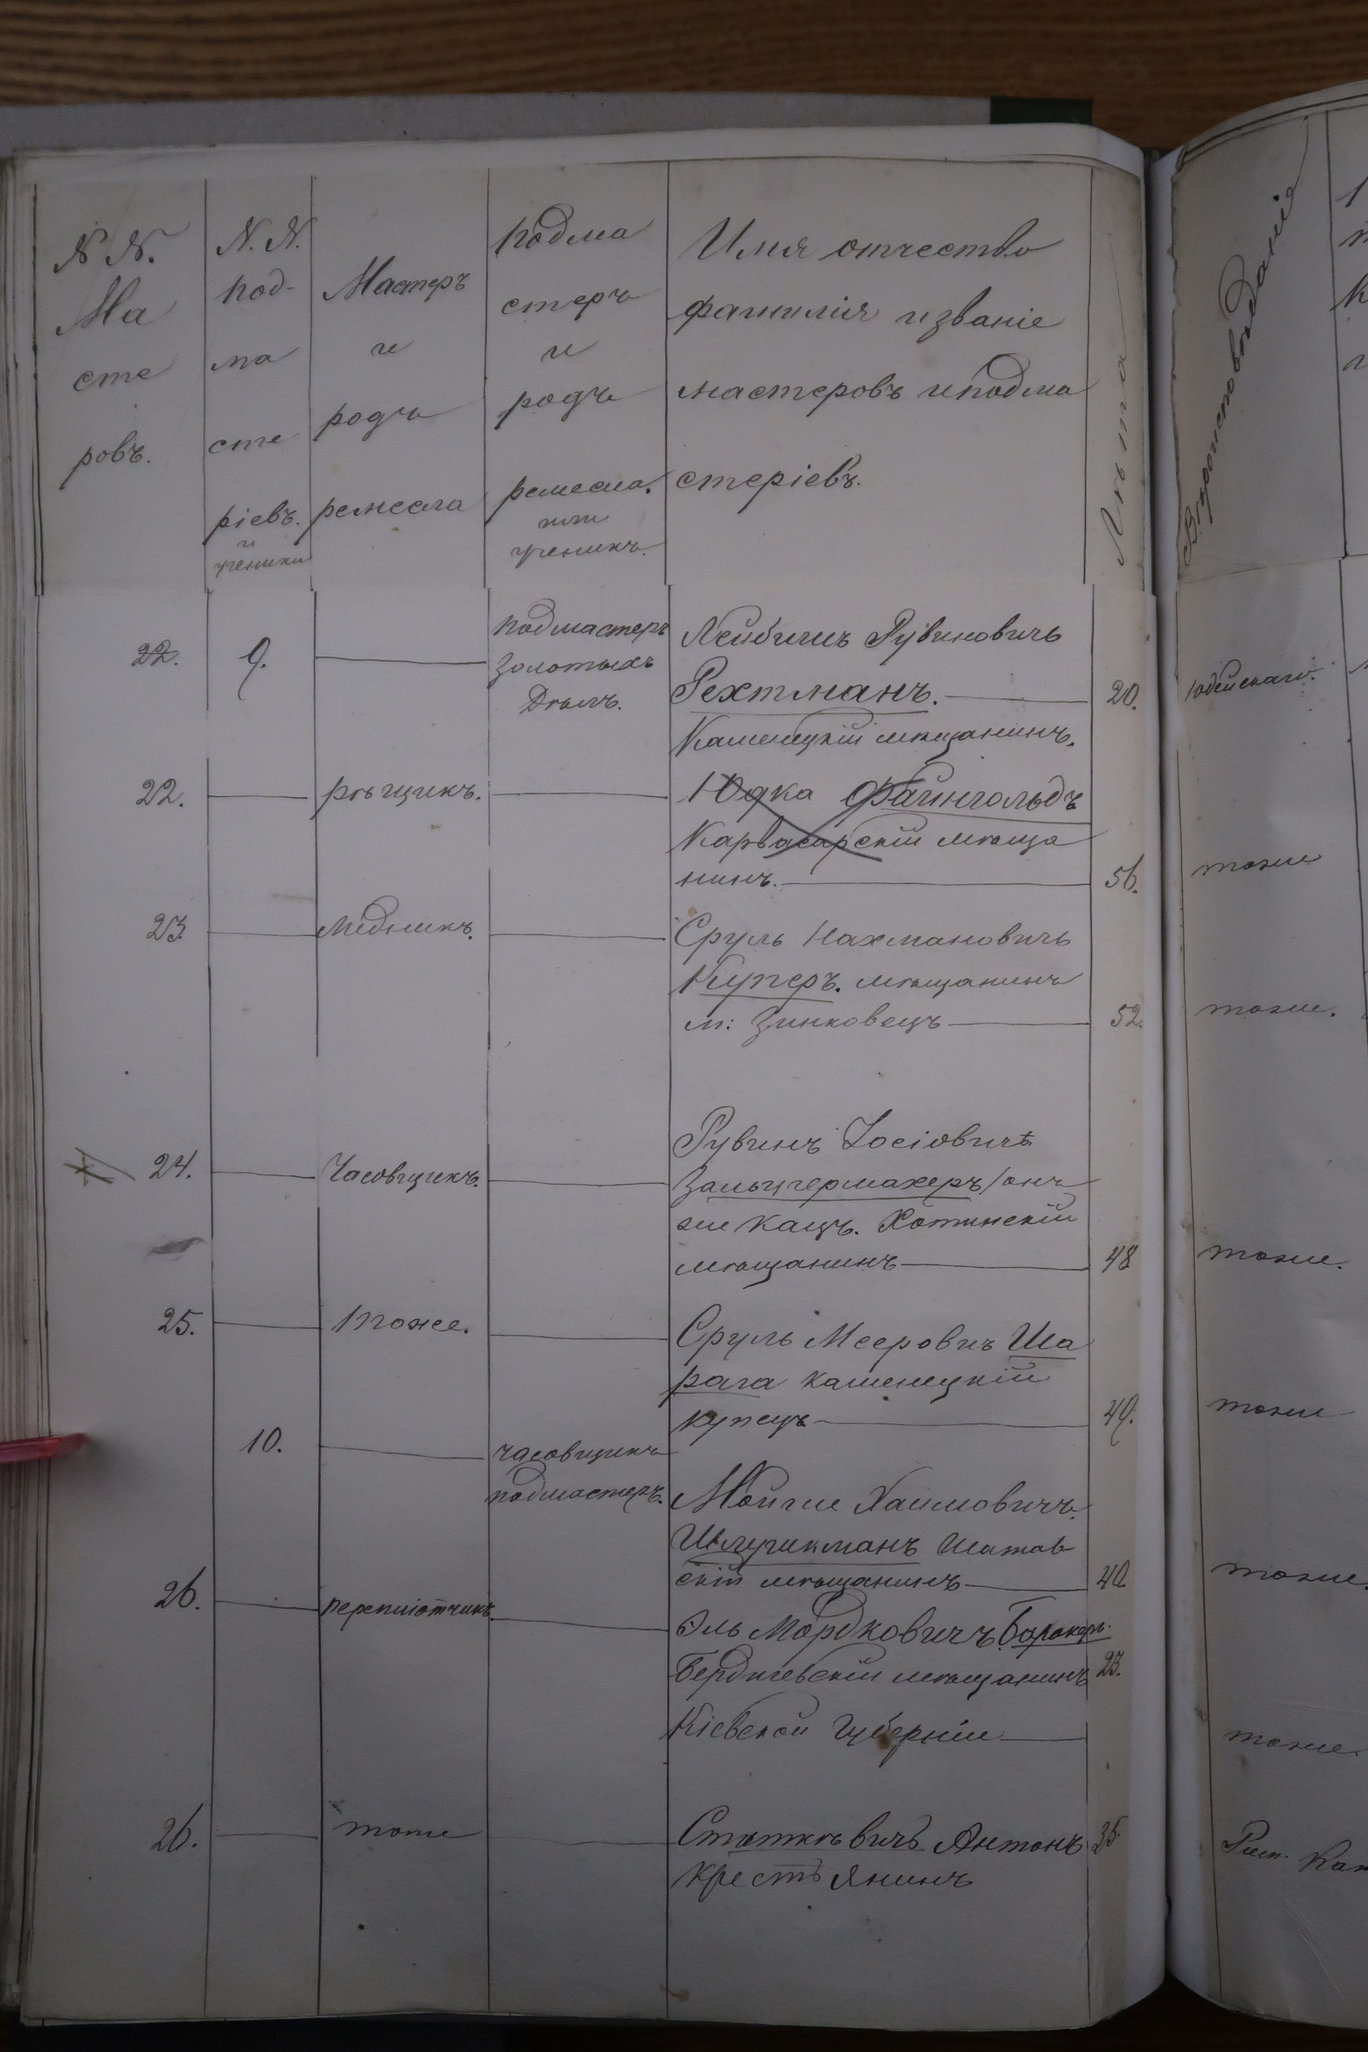 N N.
Ма
сте
ровъ.
N. N.
под-
ма
сте
ріевъ.
и
ученики
Мастеръ
и
родъ
ремесла
подма
стеръ
и
родъ
ремесла.
или
ученикъ.
Имя отчество
фамилія и званіе
мастеровъ и подма
стеріевъ.
Лѣта
Вѣроисповѣданія
22.
9.
подмастеръ
Золотыхъ
Дѣлъ.
Лейбишъ Рувиновичъ
Рехтманъ.
Каменецкій мѣщанинъ.
20.
Іудейскаго.
22.
рѣщикъ.
Юдка Файнгольдъ
Карвасарскій мѣща
нинъ.
56.
тоже
23.
Мѣдникъ.
Сруль Нахмановичъ
Куперъ. мѣщанинъ
м: Зинковецъ
52.
тоже.
24.
Часовщикъ.
Рувинъ Іосіовичъ
Зальцгермахеръ/онъ
же Кацъ. Хотинскій
мѣщанинъ
48
тоже.
25.
Тоже.
Сруль Мееровичъ Ша
рага каменецкій
купецъ
49.
тоже
10.
часовщикъ
подмастеръ.
Мойше Хаимовичъ.
Шатав
скій мѣщанинъ
40
тоже.
26.
переплётчикъ
Эль Мордковичъ
Бердичевскій мѣщанинъ
Кіевской Губерніи
23.
тоже.
26.
тоже
Статкѣвичъ Антонъ
крестьянинъ
35.
Рим. Кат